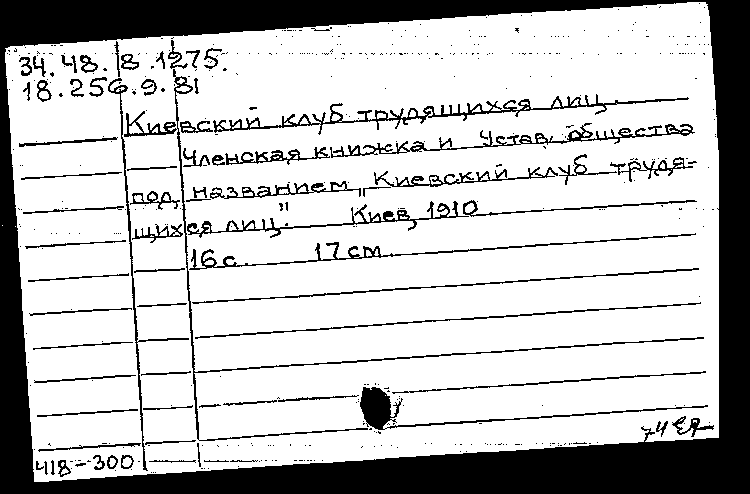 34.48.8.1275.
18.256.9.81
Киевский клуб трудящихся лиц.
Членская книжка и Устав общества
под названием „Киевский клуб трудя-
щихся лиц". Киев, 1910.
16 с. 17 см.
74
418-300